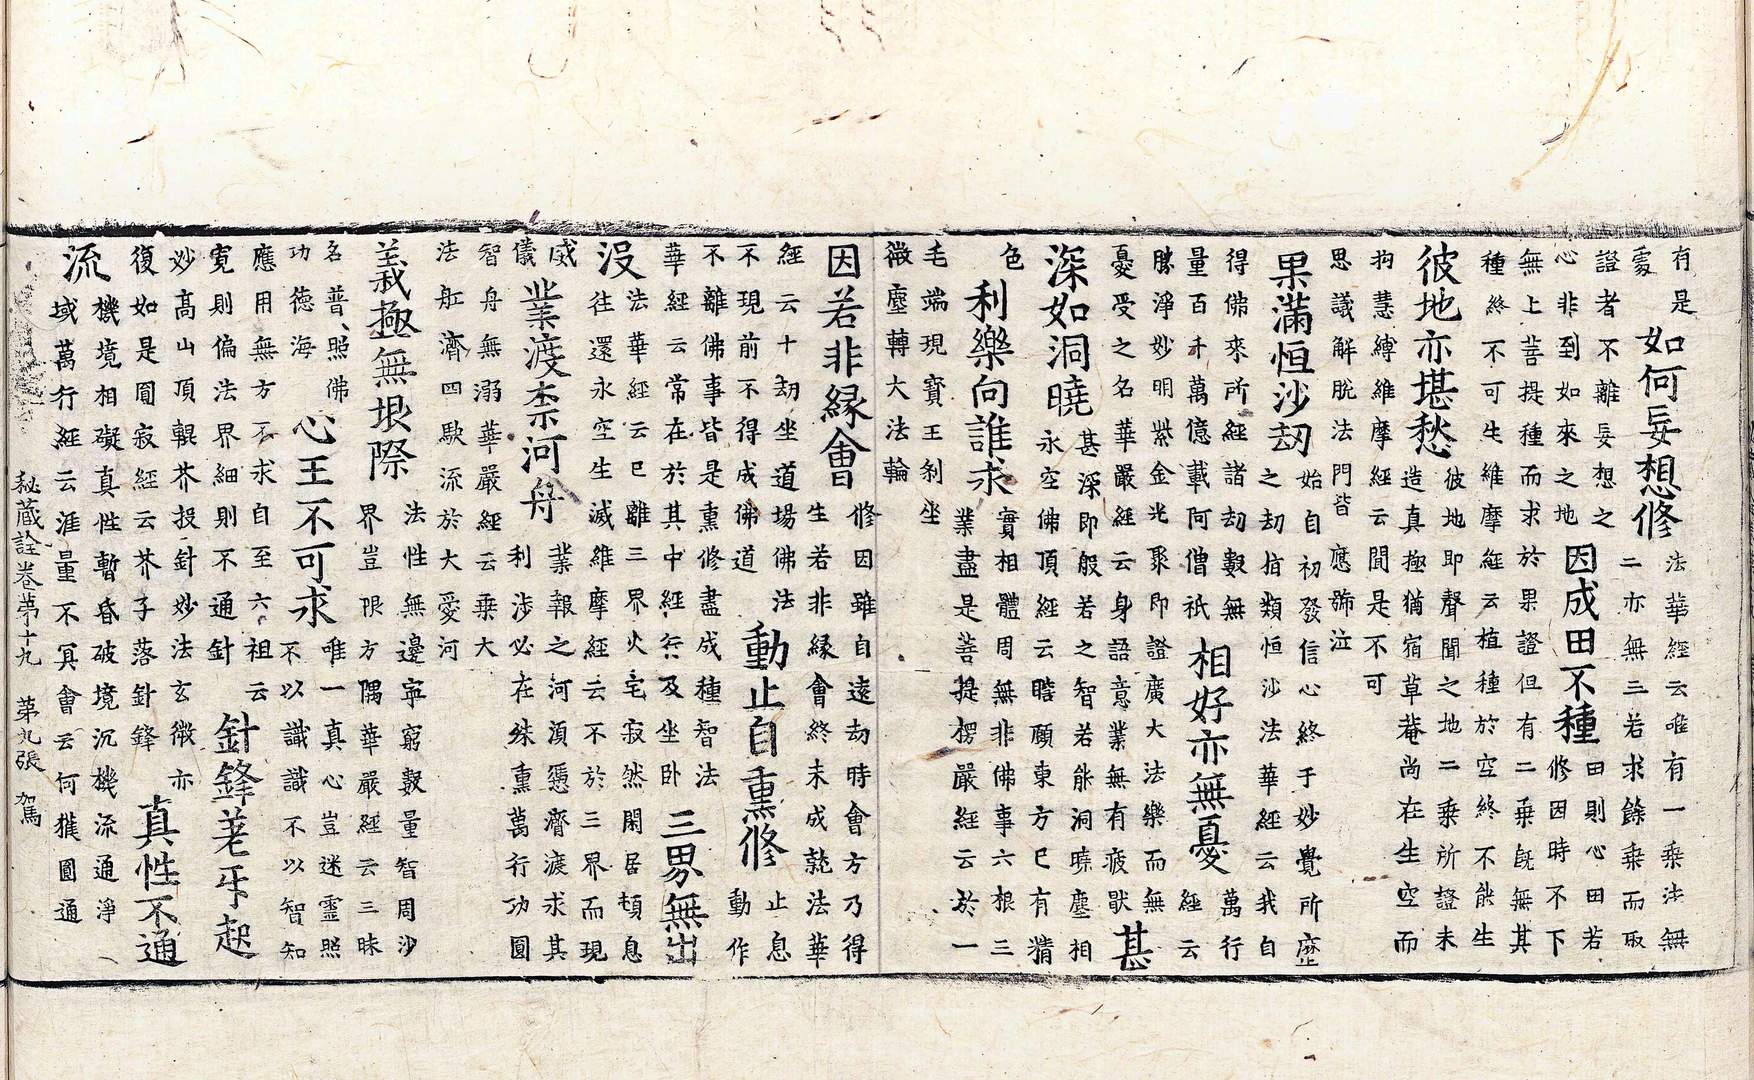 有是
處
如何妄想修
法華經云唯有一乘法無
二亦無三若求餘乘而取
證者不離妄想之
心非到如來之地
因成田不種
田則心田若
修因時不下
無上菩提種而求於果證但有二乘旣無其
種終不可生維摩經云植種於空終不能生
彼地亦堪愁
彼地即聲聞之地二乘所證未
造真極猶宿草菴尚在生空而
拘慧縛維摩經云聞是不可
思議解脫法門皆應號泣
果滿恒沙劫
始自初發信心終于妙覺所歷
之劫倍類恒沙法華經云我自
得佛來所經諸劫數無
量百千萬億載阿僧祇
相好亦無憂
萬行
經云
勝淨妙明紫金光聚即證廣大法樂而無
憂受之名華嚴經云身語意業無有疲猒
甚
深如洞曉
甚深即般若之智若能洞曉塵相
永空佛頂經云瞻顧東方已有精
色
利樂向誰求
實相體周無非佛事六根三
業盡是菩提楞嚴經云於一
毛端現寶王剎坐
微塵轉大法輪
因若非縁會
修因雖自遠劫時會方乃得
生若非縁會終未成就法華
經云十劫坐道場佛法
不現前不得成佛道
動止自熏修
止息
動作
不離佛事皆是熏修盡成種智法
華經云常在於其中經行及坐卧
三界無出
沒
法華經云已離三界火宅寂然閑居頓息
往還永空生滅維摩經云不於三界而現
威
儀
業渡柰河舟
業報之河湏憑濟渡求其
利涉必在殊熏萬行功圓
智舟無溺華嚴經云乘大
法舡濟四駛流於大愛河
義極無垠際
法性無邊寧窮數量智周沙
界豈限方隅華嚴經云三昧
名普照佛
功德海
心王不可求
唯一真心豈迷靈照
不以識識不以智知
應用無方不求自至六祖云
寛則徧法界細則不通針
針鋒若芥起
妙高山頂輥芥投針妙法玄微亦
復如是圓寂經云芥子落針鋒
真性不通
流
機境相礙真性暫昏破境沉機流通淨
域萬行經云涯量不冥會云何獲圓通
秘藏詮卷第十九 第九張 駕